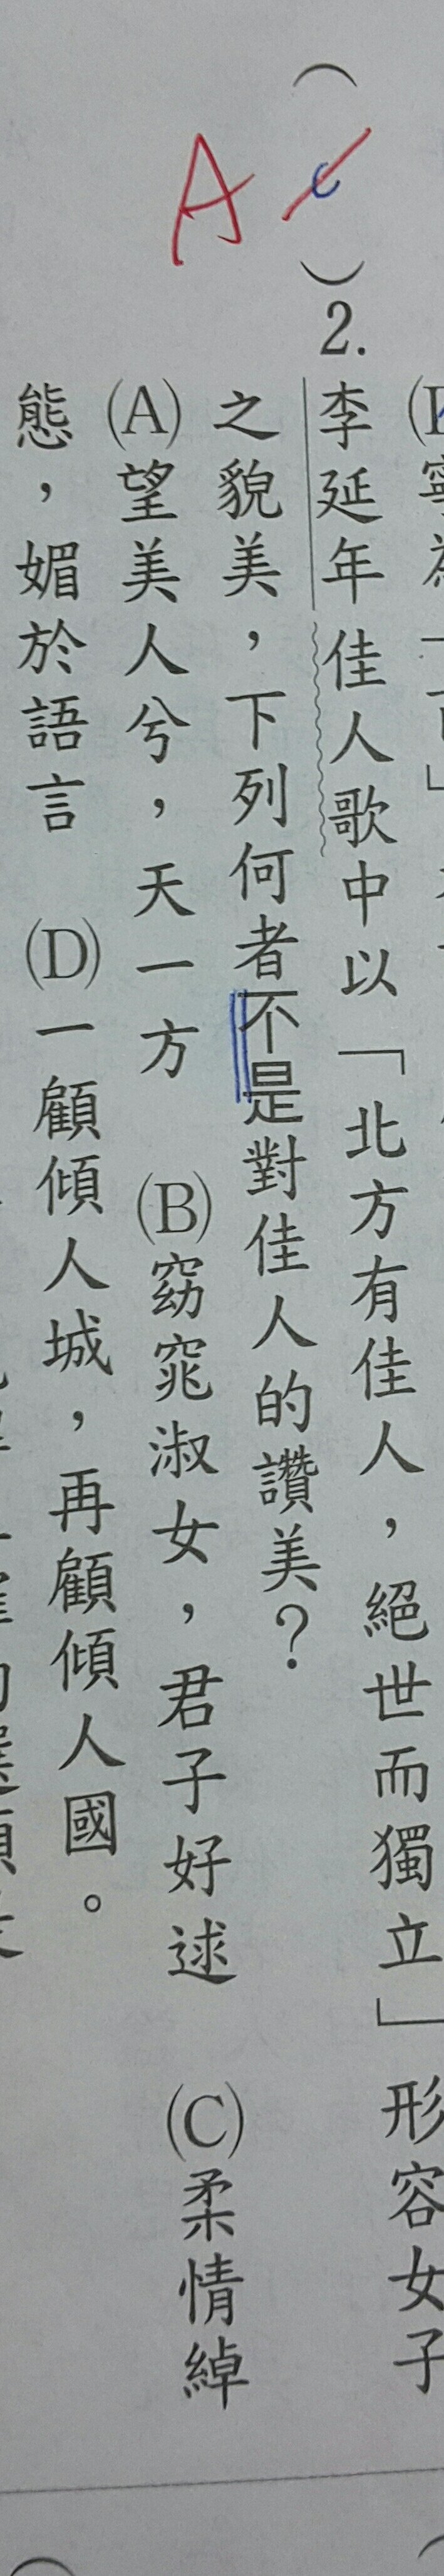 A
c
(　)2.李延年佳人歌中以「北方有佳人，絕世而獨立」形容女子
之貌美，下列何者不是對佳人的讚美？
(A)望美人兮，天一方　(B)窈窕淑女，君子好逑　(C)柔情綽
態，媚於語言　(D)一顧傾人城，再顧傾人國。